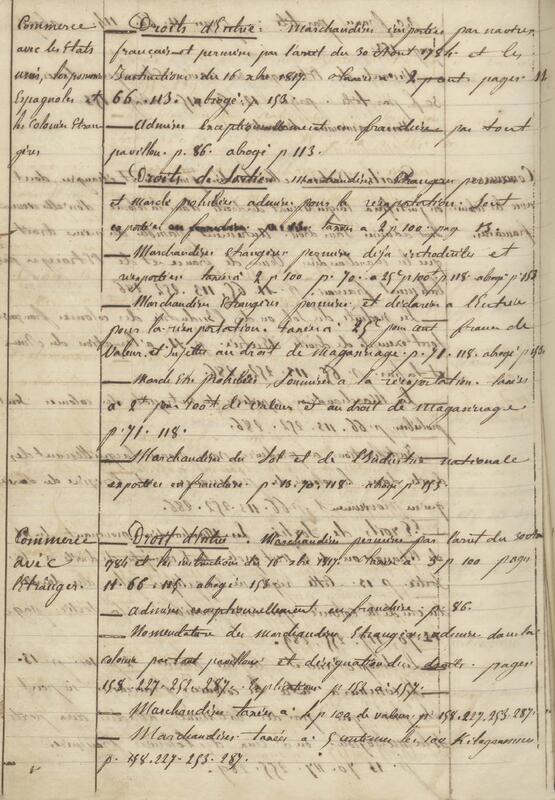 Commerce — Droits d'Entrée. Marchandises importées par navires
avec les Etats français et permises par l'arret du 30 août 1784 et les
unis, les possons Instructions du 16 xbre 1817. 2 p cent pages 11
Espagnoles et 66. 113. abrogé. 153
les Colonies Etran — admises Exceptionnellement en franchise par tout
gères pavillon. p. 86. abrogé p 113.
— Droits de Sortie. Marchandises Etrangères
et March. prohibées admises pour la réexportation. Sont
exportées taxées à 2 p 100. page 13
— Marchandises Etrangères permises déjà introduites et
réexportées taxées 2 p 100 p. 70. à 25c p 100 p. 118 abrogé p 153
— Marchandises Etrangères permises et déclarées à l'Entrée
pour la réexportation. taxées à 25c pour cent francs de
Valeur et sujettes au droit de magasinage. p. 71. 118. abrogé p 153.
— March Etre prohibées soumises à la réexportation. taxées
à 2 p 100 de valeur et au droit de magasinage
p. 71. 118.
— Marchandises du Sol et de l'Industrie nationale
exportées en franchise. p. 13. 70. 118. abrogé p 153.
Commerce — Droit d'Entrée. Marchandises permises par l'arret du 30 août
avec 1784 et les instructions du 16 xbre 1817. taxées à 5 p 100 pages
l'Etranger. 11. 66. 115. abrogé
— admises exceptionnellement en franchise. p. 86.
— Nomenclature des marchandises Etrangères admises dans la
colonie par tout pavillon et désignation des droits. pages
158. 227. 253. 287. Explication p 154 à 157.
— Marchandises taxées à 4 p 100 de valeur. p. 158. 227. 253. 287.
— Marchandises taxées à 5 centimes les 100 Kilogrammes
p. 158. 227. 253. 287.